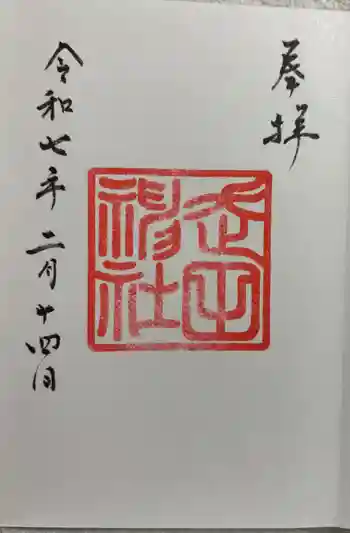 奉拝
神社
令和七年二月廿四日